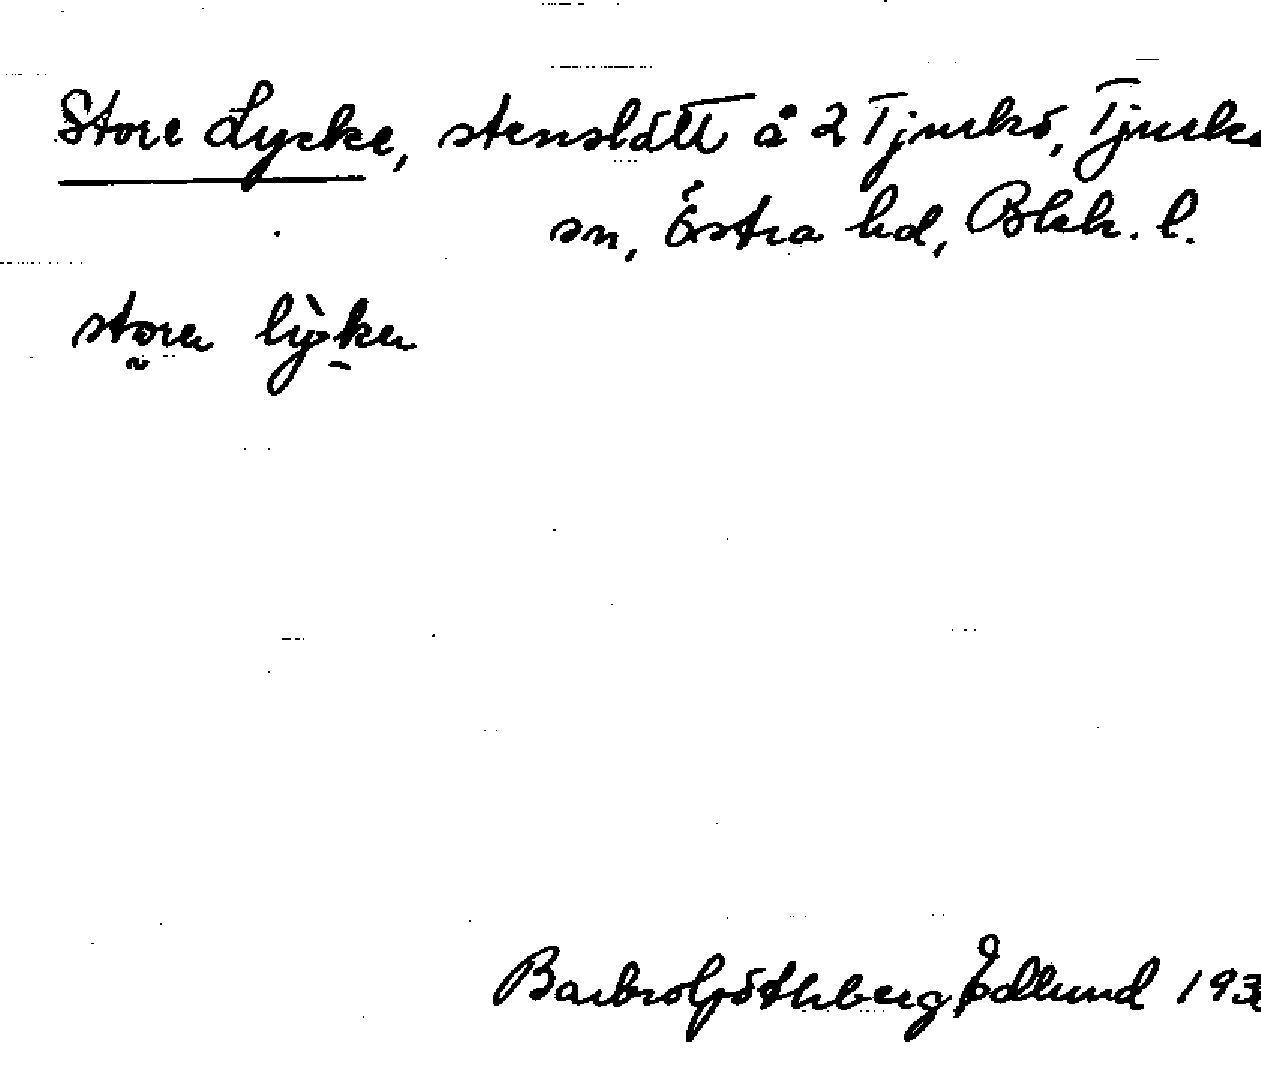 Store Lycke, stenslått å 2 Tjurkö, Tjurkö
sn, Östra hd, Blek. l.
Barbro Göthberg Edlund 193